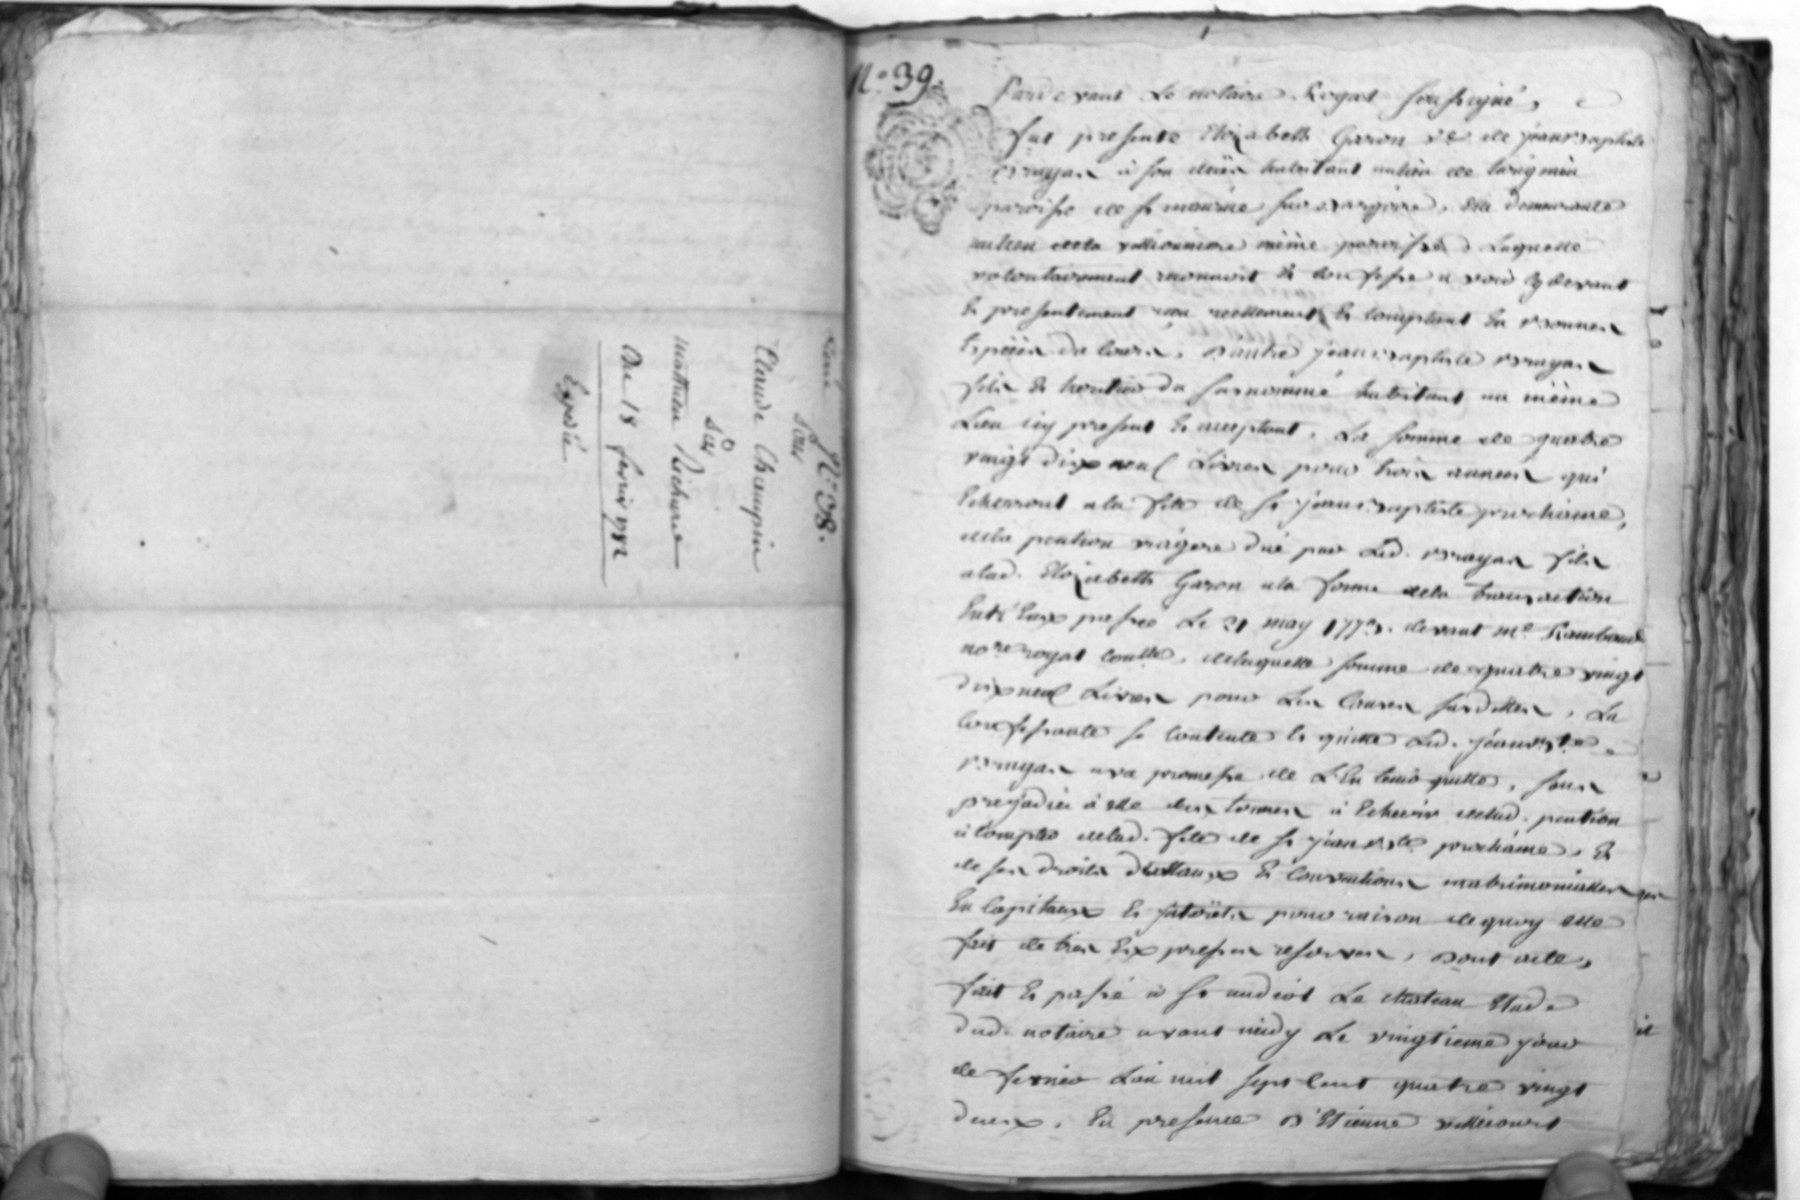 N.° 38.
pour
Claude Champin
sur
mathieu Richard
Du 18 fevrier 1782
Expedié
N.° 39.
Pardevant Le notaire Royal soussigné,
fut presente Elizabeth Garon v.e de jean baptiste
à son deces habitant au lieu de
paroisse de st maurice sur dargoire, elle demeurante
au lieu dela même paroisse, Laquelle
volontairement reconnoit et confesse avoir cy devant
et presentement reçu reellement et comptant en bonnes
Especes du cours, d'autre jean baptiste
fils et heritier du susnommé habitant au même
Lieu icy present et acceptant, La somme de quatre
vingt dix neuf Livres pour trois années qui
Echerront a la fete de st jean baptiste prochaine,
dela pention viagere dué par Led. fils
alad. Elizabeth Garon ala forme dela transaction
Entr'Eux passée Le 21 may devant m.e Rambaud
no.re royal, delaquelle somme de quatre vingt
dix neuf Livres pour Les causes susdittes, La
confessante se contente et quitte Led. jean b.te
avec promesse de L'En tenir quitte, sans
prejudice à elle des termes à Echeoir delad. pention
à compter delad. fete de st jean b.te prochaine, et
de ses droits dottaux et conventions matrimonialles
En capitaux et interets pour raison dequoy elle
fait de tres Expresses reserves, Dont acte,
fait et passé à st andeol Le chateau Etude
dud. notaire avant midy Le vingtieme jour
de fevrier L'an mil sept cent quatre vingt
deux, En presence D'Etienne